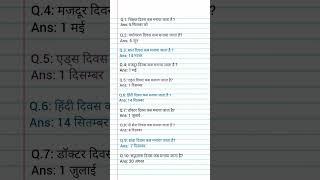 Q.1: शिक्षक दिवस कब मनाया जाता है ?
Ans: 5 सितम्बर को
Q.2: पर्यावरण दिवस कब मनाया जाता है?
Ans: 5 जून
Q.3: बाल दिवस कब मनाया जाता है ?
Ans: 14 नवंबर
Q.4: मजदूर दिवस कब मनाया जाता है ?
Ans: 1 मई
Q.5: एड्स दिवस कब मनाया जाता है?
Ans: 1 दिसम्बर
Q.6: हिंदी दिवस कब मनाया जाता है ?
Ans: 14 सितम्बर
Q.7: डॉक्टर दिवस कब मनाया जाता है?
Ans: 1 जुलाई
Ans: 8 सितम्बर
Q.9: झंडा दिवस कब मनाया जाता है?
Ans: 7 दिसम्बर
Q.10: सद्भावना दिवस कब मनाया जाता है?
Ans: 20 अगस्त
Q.4: मजदूर दिव
Ans: 1 मई
Q.5: एड्स दिवस
Ans: 1 दिसम्बर
Q.6: हिंदी दिवस
Ans: 14 सितम्ब
Q.7: डॉक्टर दिव
Ans: 1 जुलाई